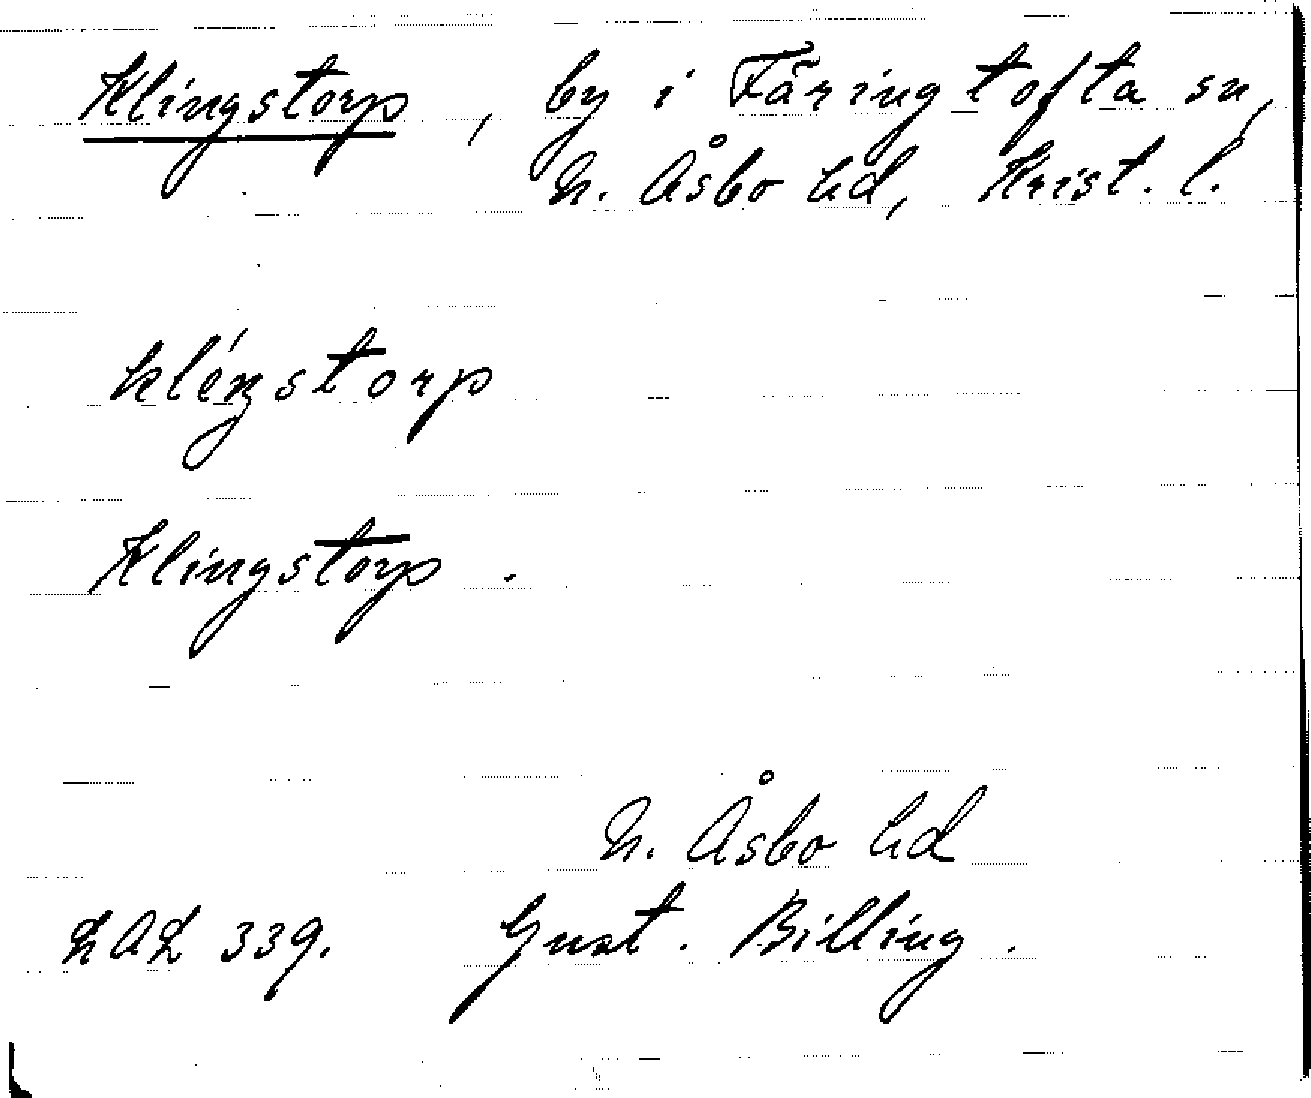 Klingstorp, by i Färingtofta sn,
N. Åsbo hd, Krist. l.
kléŋstorp
Klingstorp.
N. Åsbo hd
LAL 339. Gust. Billing.